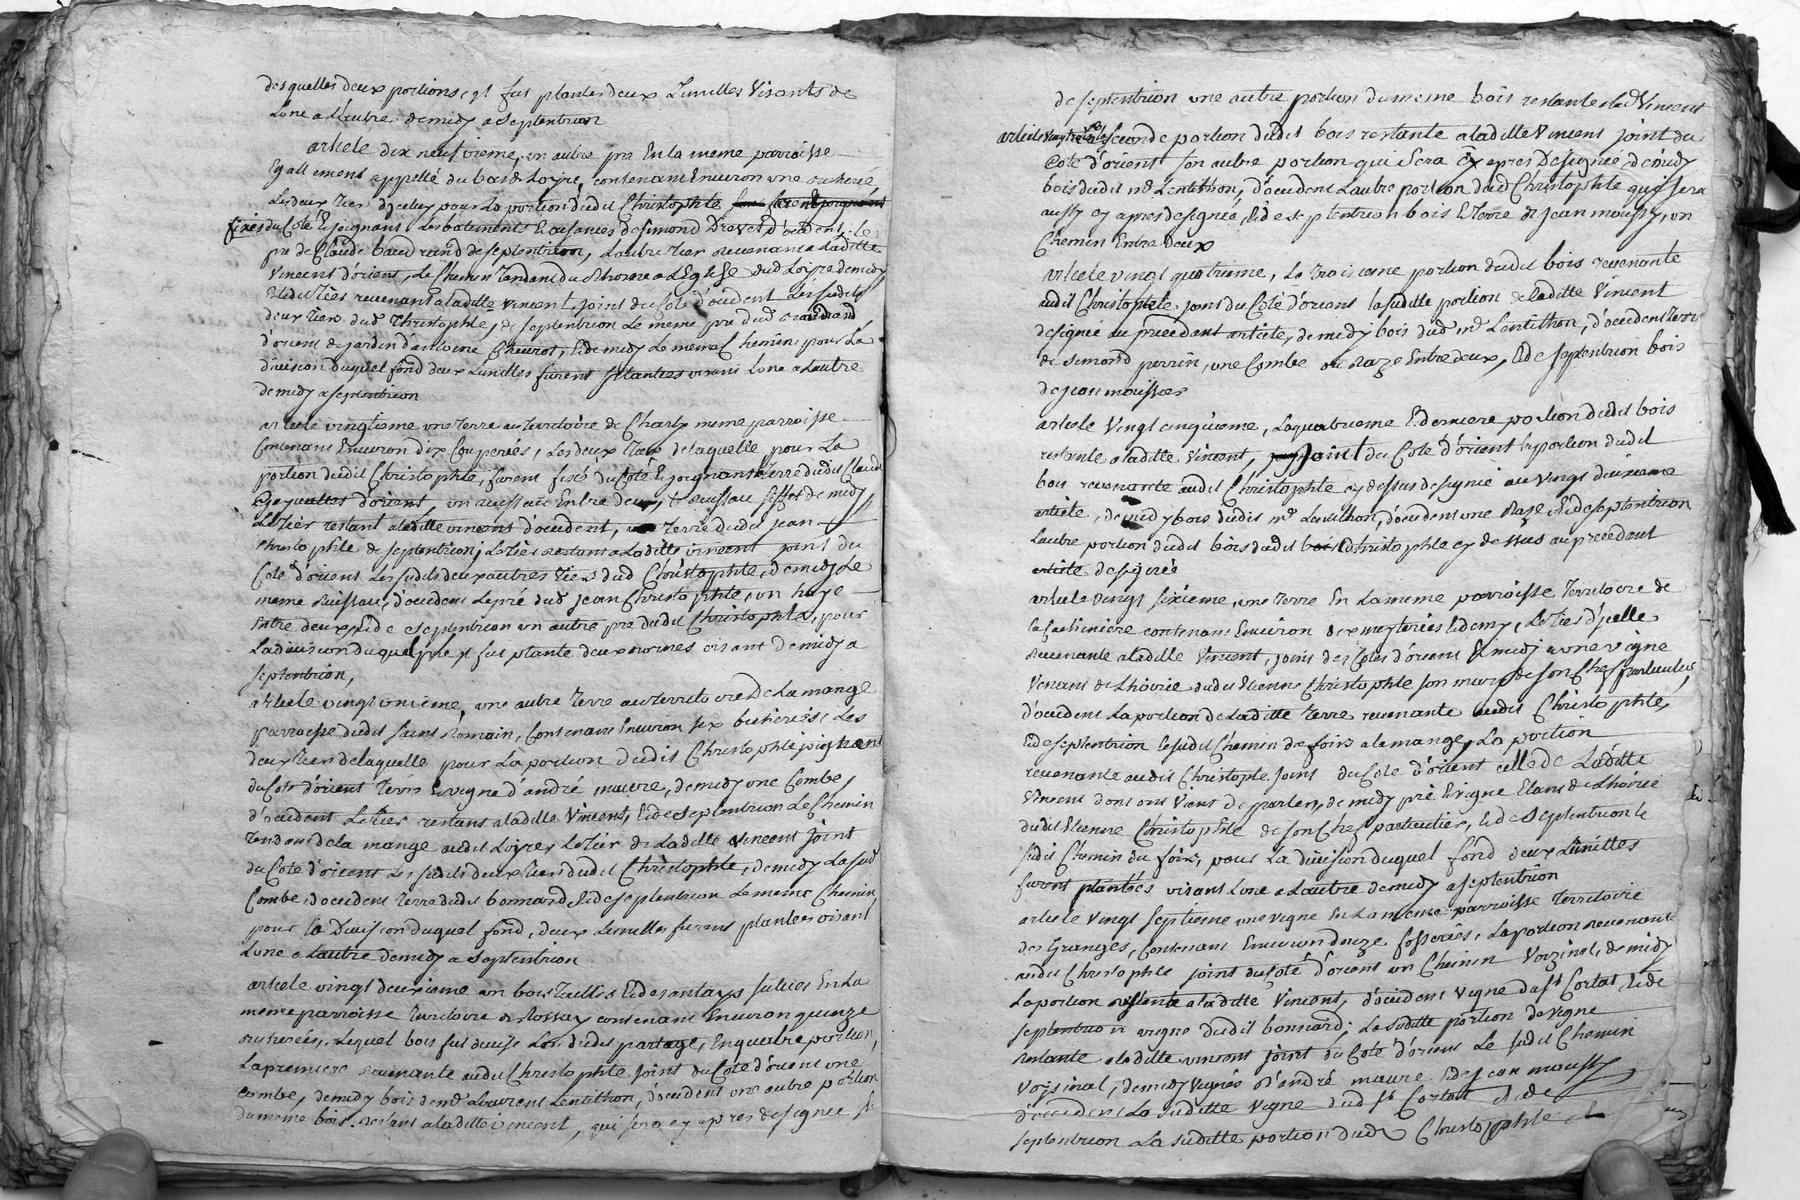 desquelles deux portions, il fut plantés deux Lunilles Visants de
Lune a Lautre de midy a septentrion
article dix neufvieme, un autre pré En la meme parroisse
Egallement appellé du bas de Loyre, contenant Environ une
Les deux tiers d'icelluy pour La portion dudit Christophle
fixés du Coté Et joignant Les batiments Et aisances de simond Drevet d'occident, le
pré de Claude baudrand de septentrion, L'autre tier revenant a Laditte
Vincent d'orient, Le Chemin tendant du Rhosne a L'Eglise dud Loyre de midy
Ledit tiers revenant a laditte Vincent, joint du Coté d'occident Les susdits
deux tiers dud Christophle, de septentrion Le meme pré dud Baudrand
d'orient de jardin d'antoine Chevrot, Et de midy Le meme Chemin, pour La
division duquel fond deux Lunilles furent plantées visant Lune a Lautre
de midy a septentrion
article vingtieme une terre au territoire de Charly meme parroisse
Contenant Environ dix Couperées, Les deux tiers de laquelle pour La
portion dudit Christophle, furent fixés du Coté Et joignant terre dudit Claude
d'orient, un ruisseau Entre deux, Le ruisseau de midy
Le tier restant a laditte vincent d'occident, terre dudit jean
Christophle de septentrion; Le tier restant a Laditte vincent joint du
Coté d'orient Les susdits deux autres tiers dud Christophle, de midy Le
meme Ruisseau, d'occident Le pré dud jean Christophle, un haye
Entre deux, Et de septentrion un autre pré dudit Christophle, pour
La division duquel pré il fut planté deux visant de midy a
septentrion,
article vingt unieme, une autre terre au territoire De La mange
parroisse dudit saint Romain, Contenant Environ six bicherées, Les
deux tiers de laquelle pour La portion dudit Christophle joignant
du Coté d'orient terre Et vigne d'andré mavre, de midy une Combe,
d'occident Le tier restant a laditte Vincent, Et de septentrion Le Chemin
tendant de la mange audit Loyre, Le tier de Laditte Vincent joint
du Coté d'orient Les susdits deux tiers dudit Christophle, de midy La sud
Combe, d'occident terre dudit bonnard, Et de septentrion Le meme Chemin,
pour la Division duquel fond, deux Lunilles furent plantées visant
Lune a Lautre de midy a septentrion
article vingt deuxieme un bois taillis Et de antays sutués En La
meme parroisse territoire de Rossay contenant Environ quinze
Lequel bois fut divisé Lors dudit partage, En quatre portion,
La premiere revenante audit Christophle joint du Coté d'orient une
combe, de midy bois de mr Laurent Lentithon, d'occident une autre portion
du meme bois restant a laditte vincent, qui sera cy apres designée Et
de septentrion une autre portion du meme bois restante a lad Vincent
article vingt la seconde portion dudit bois restante a laditte Vincent joint du
Coté d'orient son autre portion qui sera Cy apres Designée, de midy
bois dudit mr Lentithon, d'occident L'autre portion dud Christophle qui sera
aussy cy apres designée, Et de septentrion bois Et terre de jean moussy, un
Chemin Entre deux
article vingt quatrieme, La troisieme portion dudit bois revenante
audit Christophle, joint du Coté d'orient la susditte portion de laditte Vincent
designée au precedant article, de midy bois dud mr Lentithon, d'occident terre
de simond perrin, une Combe ou Raze Entre deux, Et de septentrion bois
de jean moussier
article Vingt cinquieme, La quatrieme Et derniere portion dudit bois
restante a laditte Vincent, joint du Coté d'orient la portion dudit
bois revenante audit Christophle cy dessus designée au vingt deuxieme
article, de midy bois dudit mr Lentithon, d'occident une Raze, Et de septentrion
L'autre portion dudit bois dudit Christophle cy dessus au precedent
article designée
article vingt sixieme, une terre En La meme parroisse territoire de
contenant Environ dix meyterées Et demy, Le tiers d'icelle
revenante a laditte Vincent, joint des Cotés d'orient Et midy a une vigne
Venant de L'hoirie dudit Etienne Christophle son mary de son Chef particulier,
d'occident La portion de Laditte terre revenante audit Christophle,
Et de septentrion le susdit Chemin de foire a la mange, La portion
revenante audit Christophle joint du Coté d'orient celle de Laditte
Vincent dont on vient de parler, de midy pré Et vigne Etant de L'hoirie
dudit Etienne Christophle de son Chef particulier, Et de septentrion le
sudit Chemin du foire, pour La division duquel fond deux Lunilles
furent plantées visant Lune a Lautre de midy a septentrion
article vingt septieme une vigne En La meme parroisse territoire
des Granges, Contenant Environ douze fosserées, La portion revenante
audit Christophle joint du Coté d'orient un Chemin Voizinal, de midy
La portion restante a laditte Vincent, d'occident vigne du sr Cortat, Et de
septentrion vigne dudit bonnard; La susditte portion de vigne
restante a laditte vincent joint du Coté d'orient Le sudit Chemin
Voysinal, de midy vignes d'andré mavre Et de jean moussy
d'occident La susditte Vigne dud sr Cortat Et de
septentrion La susditte portion dudit Christophle